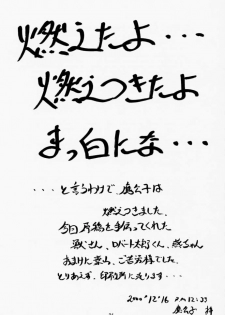 燃えたよ・・・
燃えつきたよ
まっ白にな・・・
・・・と言うわけで、公子は
燃えつきました
今回原稿を手伝ってくれた
さん、ロバート くん、ちゃん
あまけに 、ご苦労様でした。
とりあえず、印刷所に走ります・・・
2000 '12 '16 P.M 12:33
公子 拝